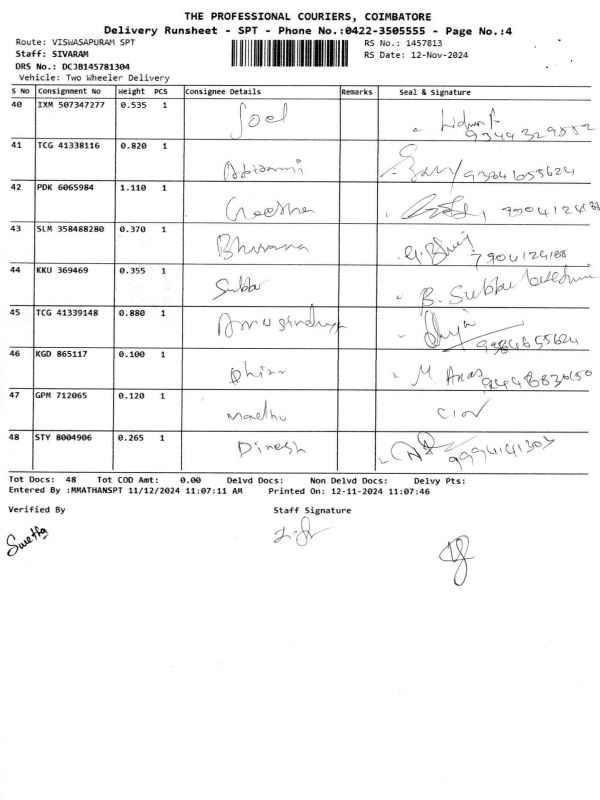 THE PROFESSIONAL COURIERS, COIMBATORE
Delivery Runsheet - SPT - Phone No.:0422-3505555 - Page No.:4
Route: VISWASAPURAM SPT RS No.: 1457813
Staff: SIVARAM RS Date: 12-Nov-2024
DRS No.: DCJB145781304
Vehicle: Two Wheeler Delivery
S No Consignment No Weight PCS Consignee Details Remarks Seal & Signature
40 IXM 507347277 0.535 1 Joel
9344329852
41 TCG 41338116 0.820 1
9384655624
42 PDK 6065984 1.110 1
43 SLM 358488280 0.370 1 Bhuvana
7904124188
44 KKU 369469 0.355 1 Subbu B.
45 TCG 41339148 0.880 1
9384655624
46 KGD 865117 0.100 1 M. Anas
47 GPM 712065 0.120 1 Madhu
48 STY 8004906 0.265 1 Dinesh
Tot Docs: 48 Tot COD Amt: 0.00 Delvd Docs: Non Delvd Docs: Delvy Pts:
Entered By :MMATHANSPT 11/12/2024 11:07:11 AM Printed On: 12-11-2024 11:07:46
Verified By Staff Signature
Swetha